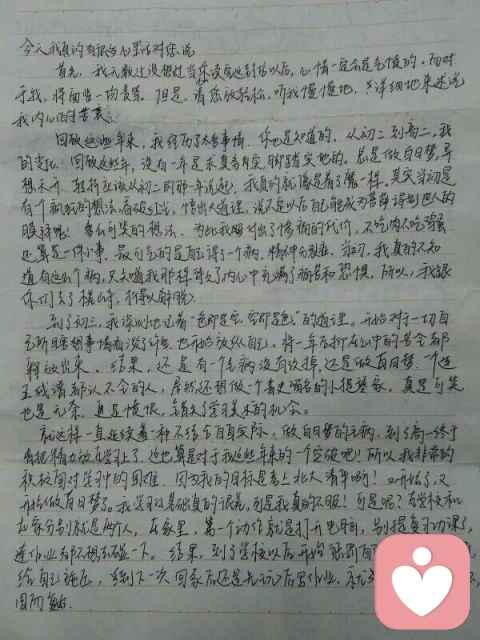 今天我真的有很多心里话对您说
首先,我无数过没想过当您读完这封信以后,心情一定会是气愤的。而对
于我,将面临一场责骂。但是,请您放轻松,听我慢慢地、详细地来述说
我内心的苦衷。
回顾这些年来,我经历了太多事情,你也是知道的,从初二到高二,我
的变化。回顾这些年,没有一年是求真务实,脚踏实地的。总是做白日梦,异
想天开。转折应该从初二的那一年说起,我真的就像是着了魔一样。其实当初是
有个疯狂的想法,看破红尘,悟出大道理,说不定以后自己能成为菩萨得到世人的
膜拜呢!多么可笑的想法,为此我付出了惨痛的代价,不吃肉不吃鸡蛋
还算是一件小事,最可气的是自己得了一个病,精神分裂症。当初,我真的不知
道有这么个病,只知道我那样苦久了内心中充满了痛苦和恐惧。所以,我跟
你们去了横山寺,祈得以解脱。
到了初三,我深刻地记着“色即是空,空即是色”的道理。开始对于一切自
己所胡思想事情看淡了许多,也开始放纵自己。将一年压抑在心中的苦全部
释放出来。结果,还是有一个毛病没有改掉,还是做白日梦。一个连
五线谱都认不全的人,居然还想做一个有史留名的小提琴家,真是可笑
也是无奈,真是愤恨,错失了学习美术的机会。
就这样一直延续着一种不结合自身实际,做白日梦的毛病,到了高一终于
肯把精力放在学习上了,这也算是对于我这些年来的一个突破吧!所以我非常的
积极面对学习中的困难。因为我的目标是考上北大清华啊!又开始了,又
开始做白日梦了。我学习的基础真的很差,可是我真的不服!可是呢?在学校和
在家分别就是两个人,在家里,第一个动作就是打开电脑,别提复习功课了,
连作业都不想去碰一下。结果,到了学校以后开始
给自己施压,等到下一次回家后还是先玩后写作业,
周而复始.